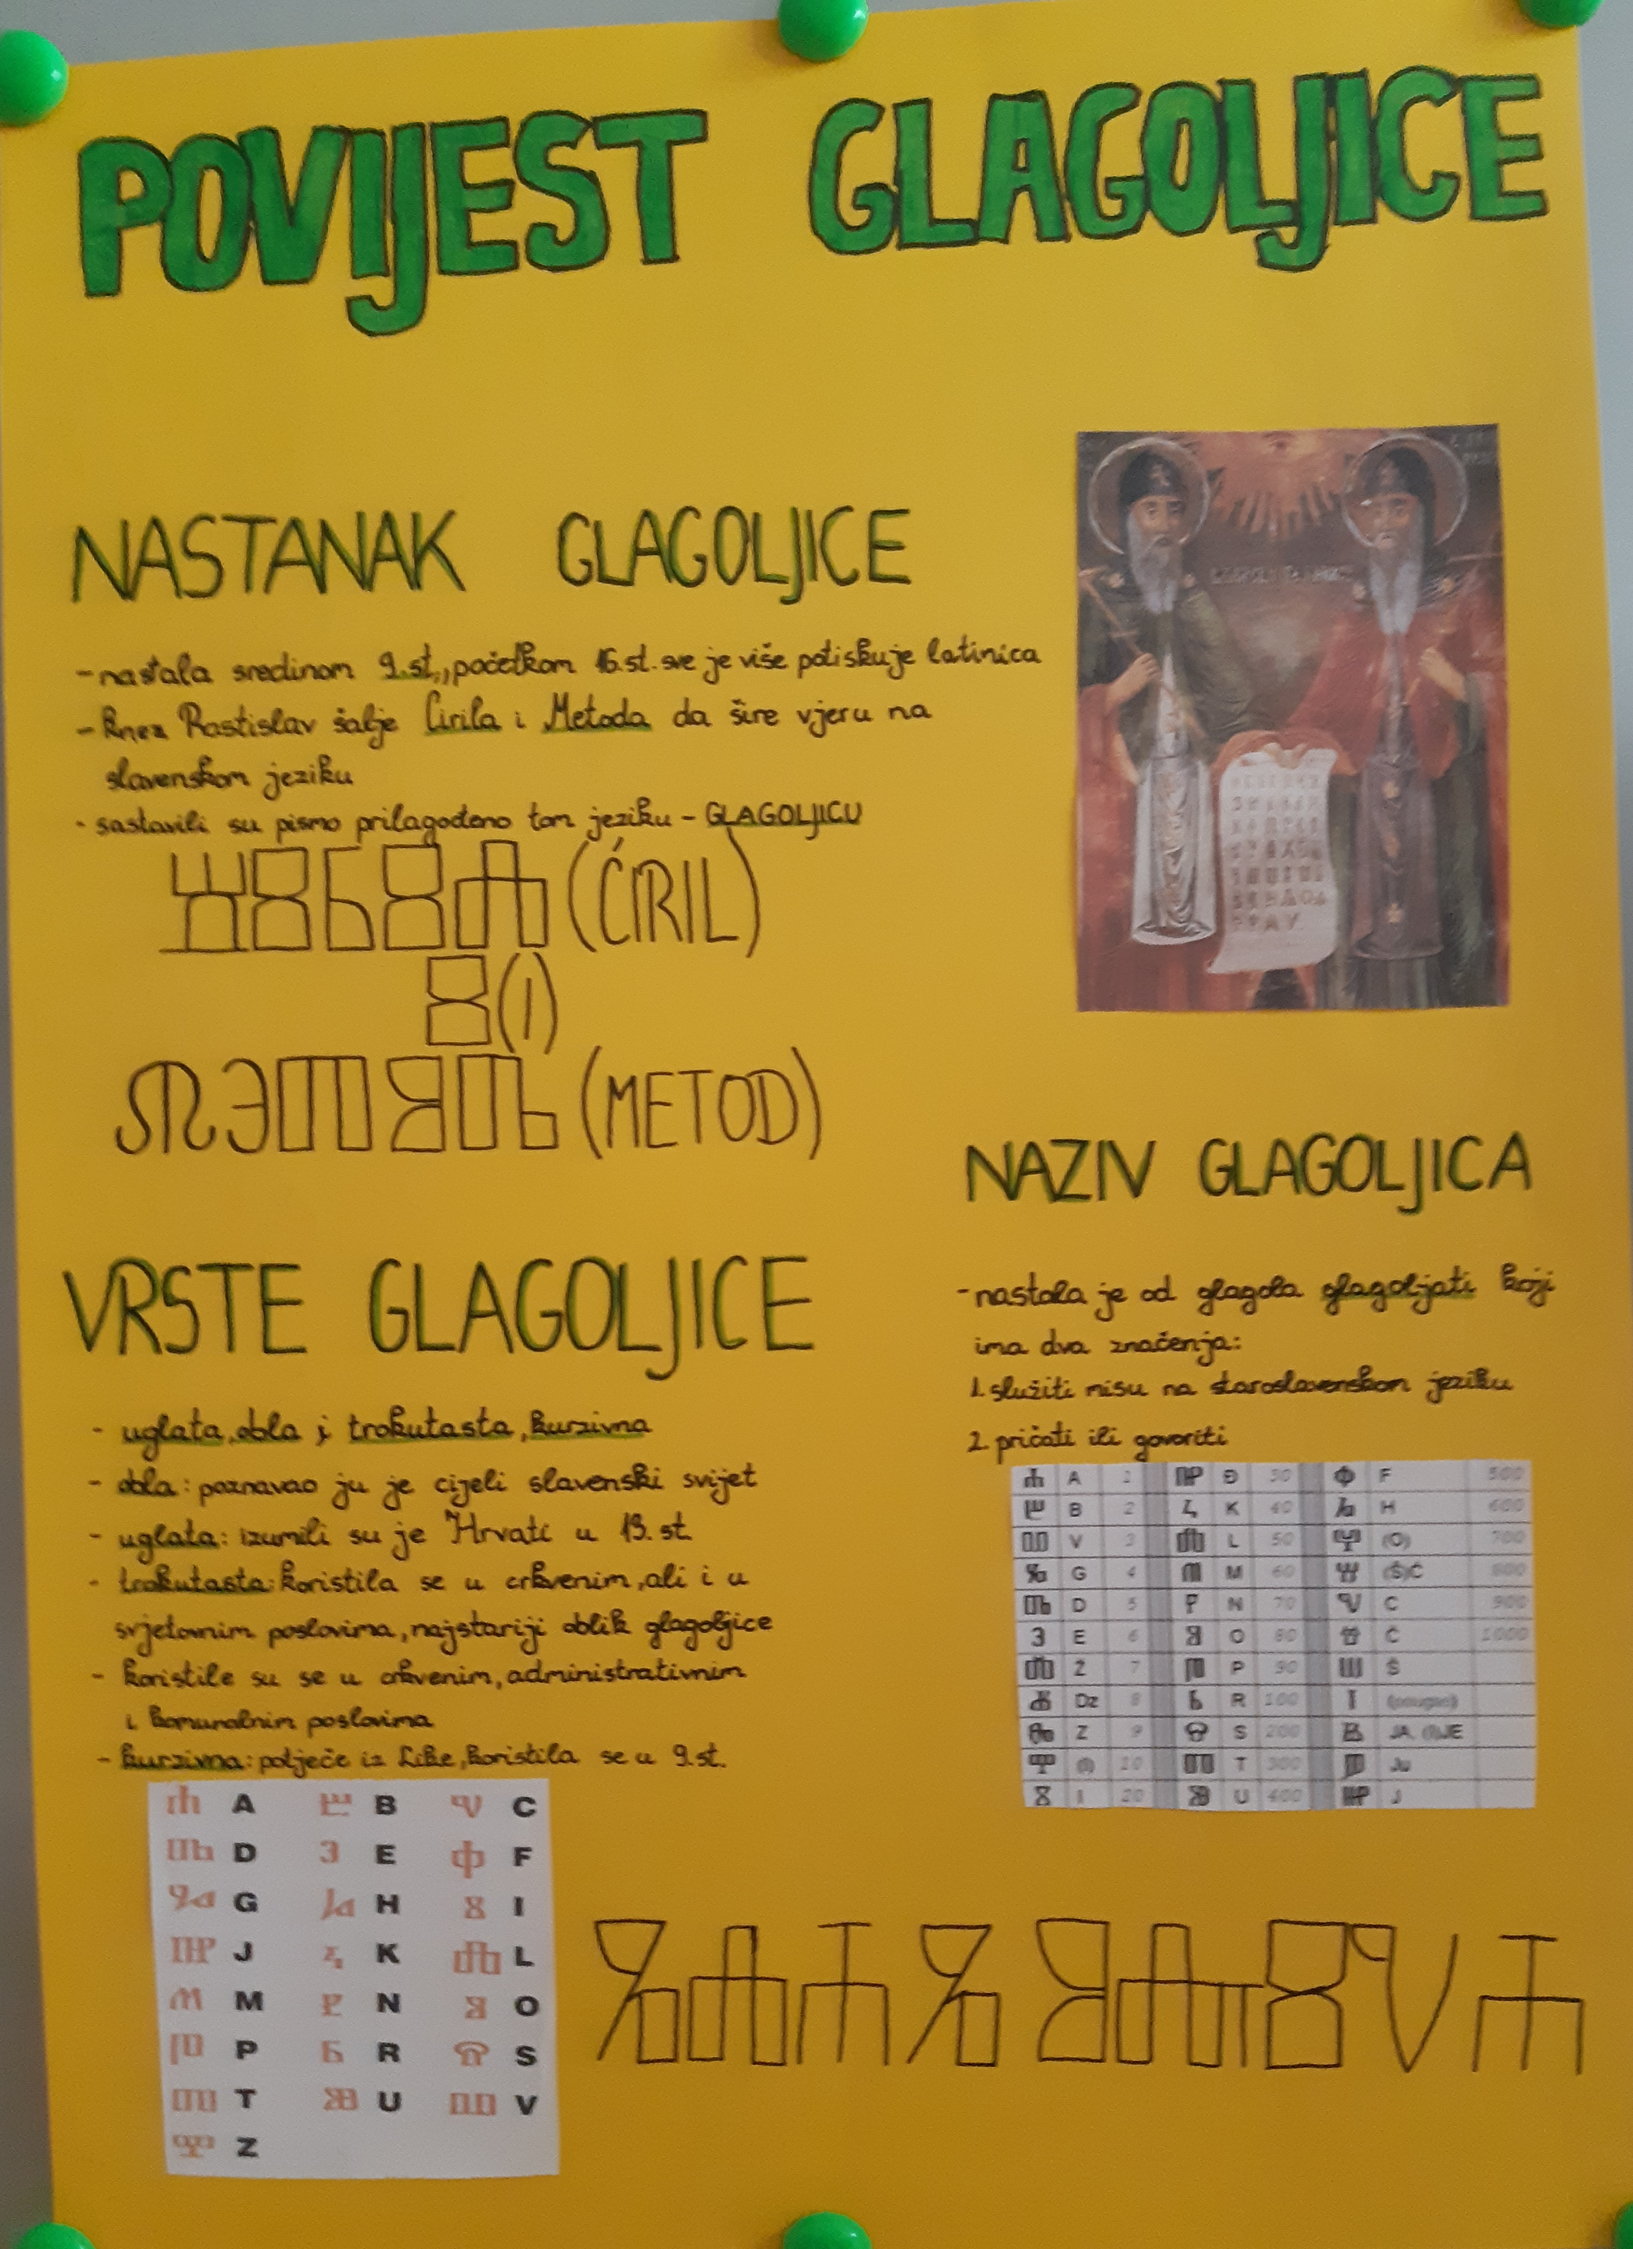 POVIJEST GLAGOLJICE
NASTANAK GLAGOLJICE
- nastala sredinom 9.st., početkom 16.st. sve je više potiskuje latinica
- knez Rastislav šalje Ćirila i Metoda da šire vjeru na
slavenskom jeziku
- sastavili su pismo prilagođeno tom jeziku - GLAGOLJICU
ⱋⰻⱃⰻⰾ (ĆIRIL)
ⰻ (I)
ⰿⰵⱅⱁⰴ (METOD)
NAZIV GLAGOLJICA
- nastala je od glagola glagoljati koji
ima dva značenja:
1. služiti misu na staroslavenskom jeziku
2. pričati ili govoriti
VRSTE GLAGOLJICE
- uglata, obla i trokutasta, kurzivna
- obla: poznavao ju je cijeli slavenski svijet
- uglata: izumili su je Hrvati u 13. st.
- trokutasta: koristila se u crkvenim, ali i u
svjetovnim poslovima, najstariji oblik glagoljice
- koristile su se u crkvenim, administrativnim
i komunalnim poslovima
- kurzivna: potječe iz Like, koristila se u 9.st.
ⰰ A 1 ⰼ Đ 30 ⱇ F 500
ⰱ B 2 ⰽ K 40 ⱈ H 600
ⰲ V 3 ⰾ L 50 ⱉ (O) 700
ⰳ G 4 ⰿ M 60 ⱋ (Š)Ć 800
ⰴ D 5 ⱀ N 70 ⱌ C 900
ⰵ E 6 ⱁ O 80 ⱍ Č 1000
ⰶ Ž 7 ⱂ P 90 ⱎ Š
ⰷ Dz 8 ⱃ R 100 (poluglas)
ⰸ Z 9 ⱄ S 200 ⱑ JA, (I)JE
ⰺ (I) 10 ⱅ T 300 ⱓ Ju
ⰻ I 20 ⱆ U 400 J
ⰰ A ⰱ B ⱌ C
ⰴ D ⰵ E ⱇ F
ⰳ G ⱈ H ⰻ I
ⰼ J ⰽ K ⰾ L
ⰿ M ⱀ N ⱁ O
ⱂ P ⱃ R ⱄ S
ⱅ T ⱆ U ⰲ V
Z
ⰳⰾⰰⰳⱁⰾⰻⱌⰰ